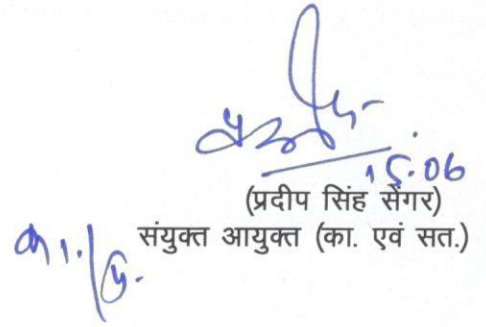 15.06
(प्रदीप सिंह सेंगर)
संयुक्त आयुक्त (का. एवं सत.)